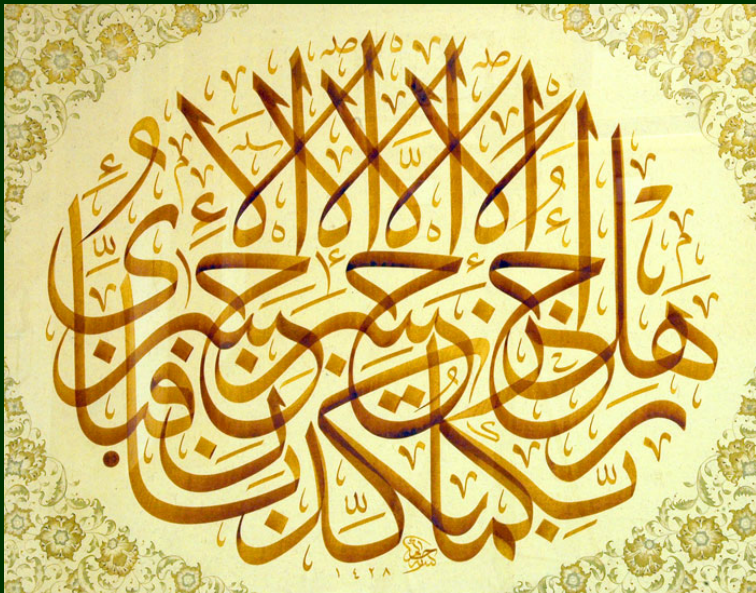 هَلْ جَزَاءُ الْإِحْسَانِ إِلَّا الْإِحْسَانُ فَبِأَيِّ آلَاءِ رَبِّكُمَا تُكَذِّبَانِ
١٤٢٨